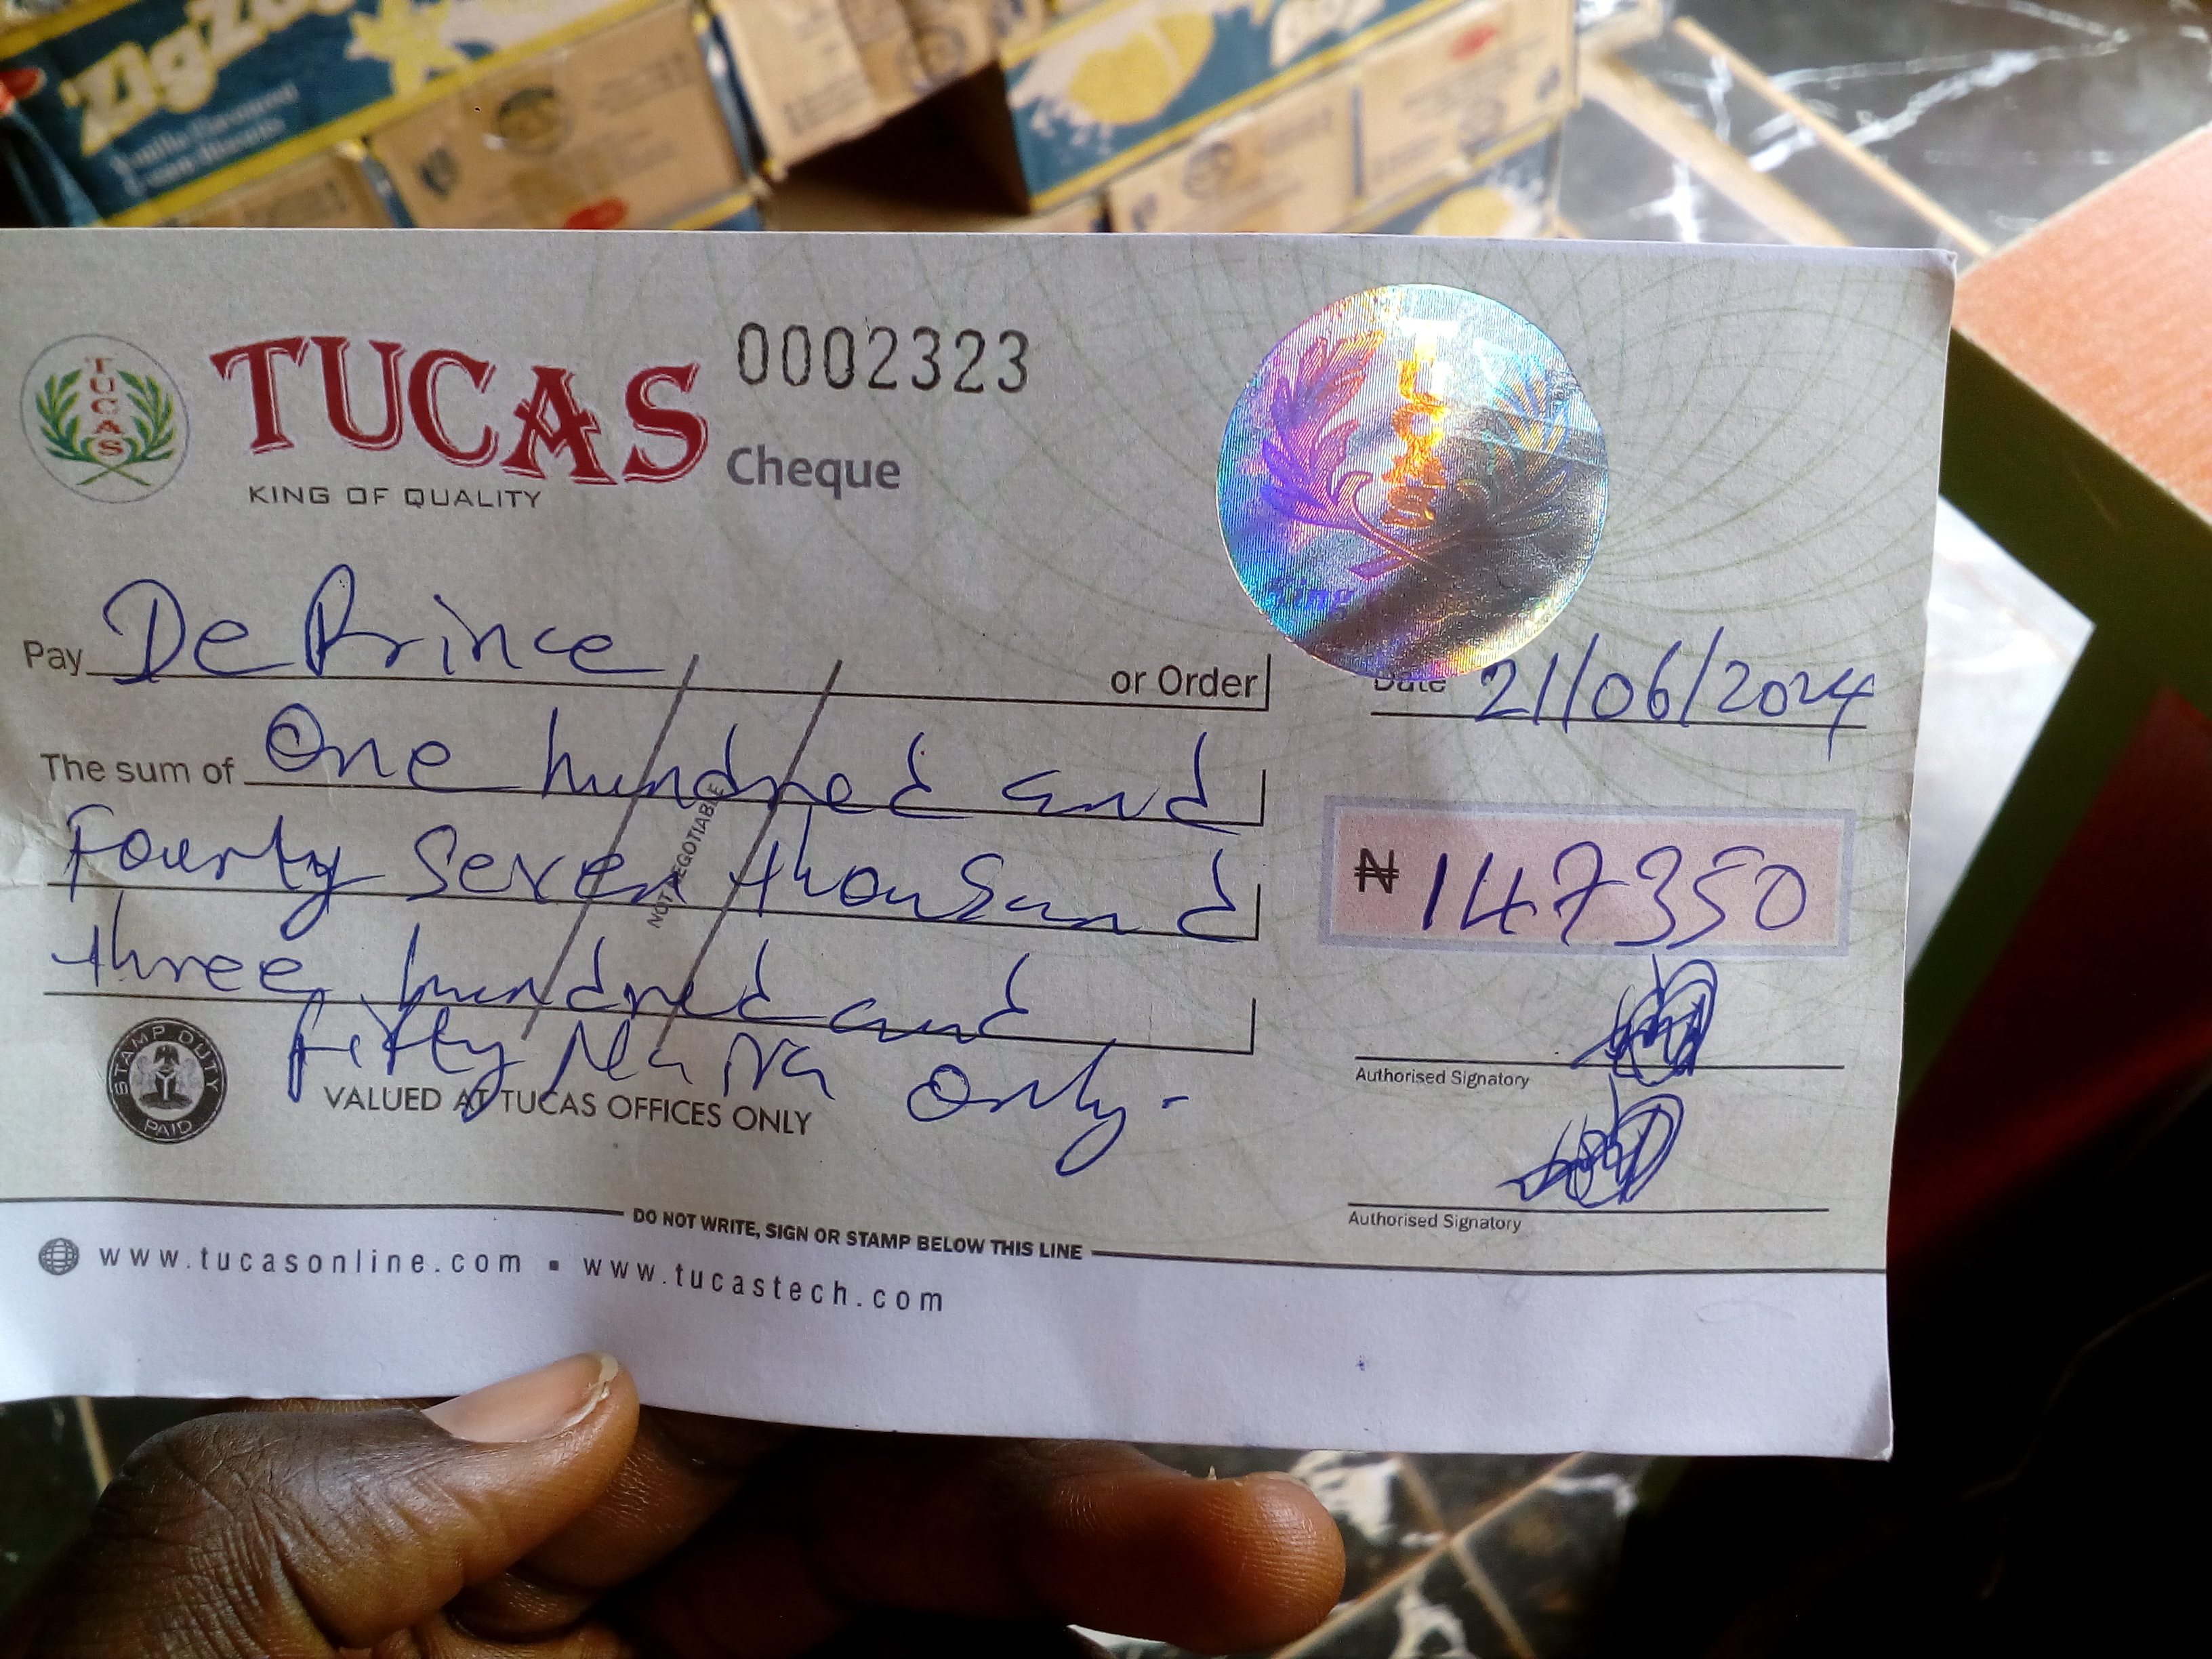 ZigZag
Vanilla Flavoured
TUCAS
TUCAS
0002323
KING OF QUALITY
Cheque
TUCAS
King
Pay De Prince or Order
Date 21/06/2024
The sum of One hundred and
Fourty Seven thousand
₦ 147350
three hundred and
fifty Naira only.
NOT NEGOTIABLE
STAMP DUTY
PAID
VALUED AT TUCAS OFFICES ONLY
Authorised Signatory
Authorised Signatory
DO NOT WRITE, SIGN OR STAMP BELOW THIS LINE
www.tucasonline.com ▪ www.tucastech.com